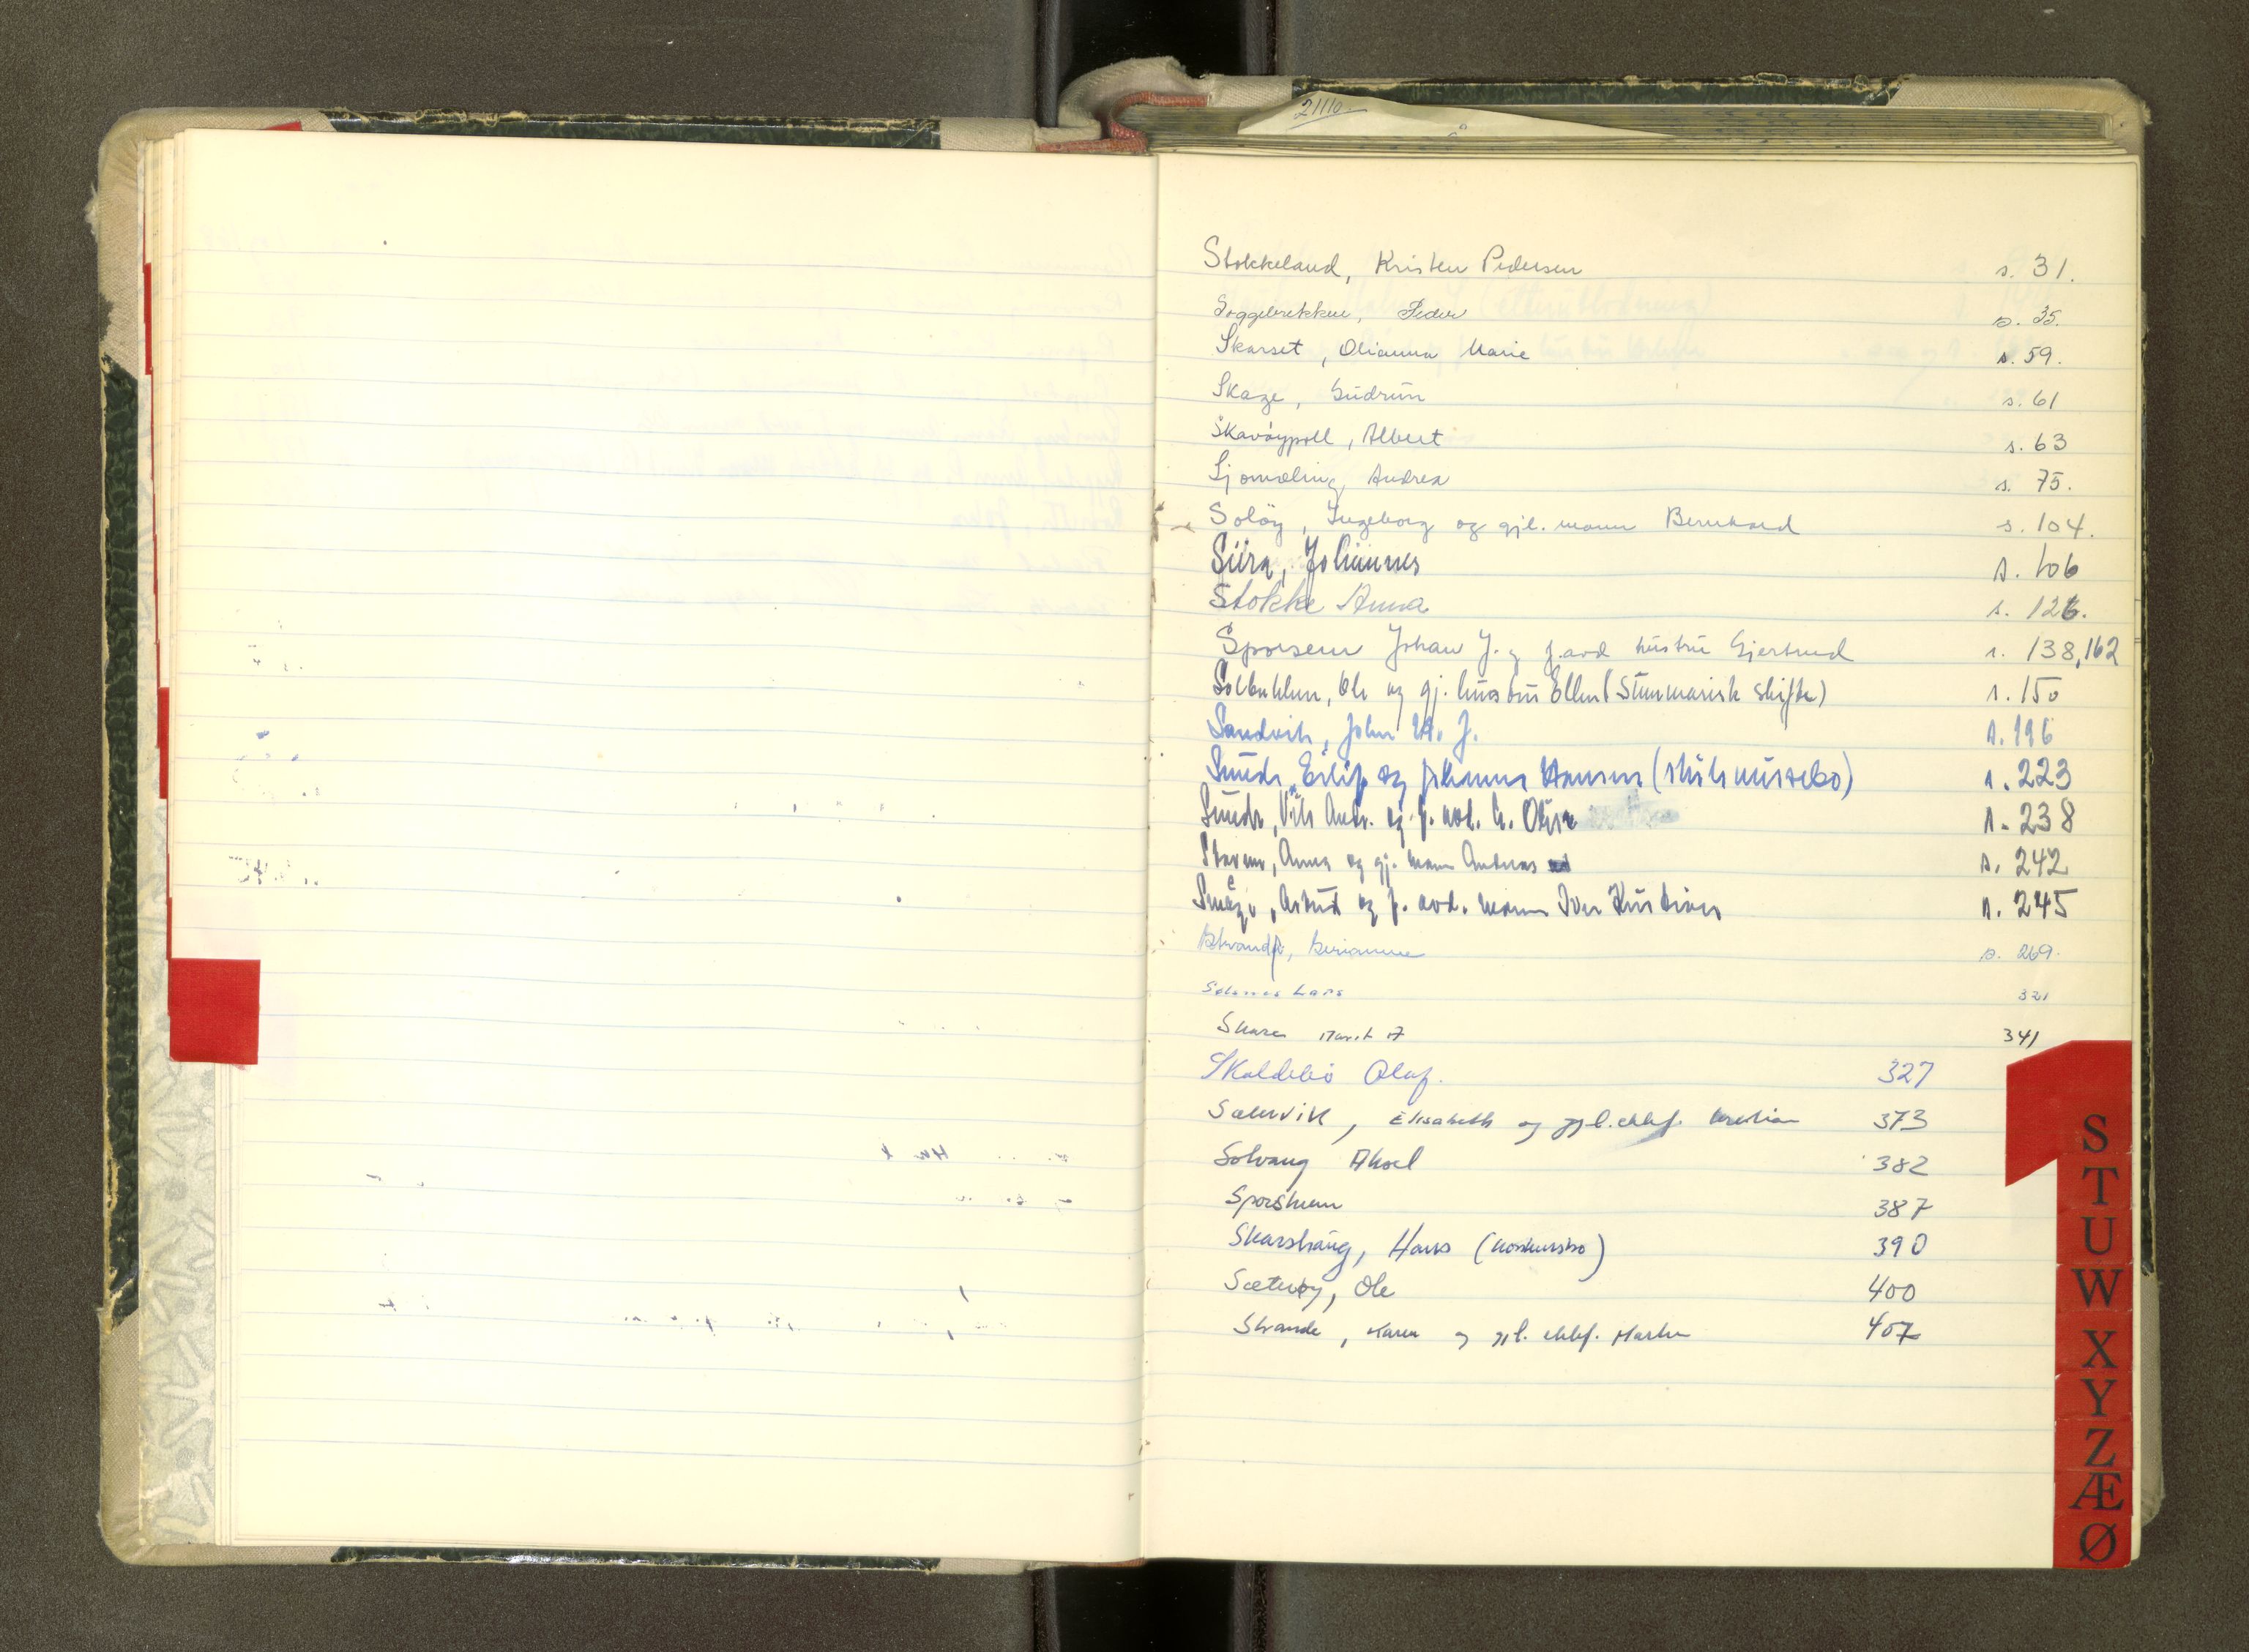 21110
Stokkeland, Kristen Pedersen s. 31.
Soggebrekkene, Peder s. 35.
Skarset, Olianna Marie s. 59.
Skage, Gudrun s. 61
Skavöypoll, Albert s. 63
Sjømæling, Andrea s. 75.
Soløy, Ingeborg og gjl. mann Bernhard s. 104.
Sura, Johannes s. 106
Stokke Anna s. 126.
Sporsem Johan J. og f. avd hustru Gjertrud s. 138,162
Solbakken, Ole og gj. hustru Ellen (Summarisk skifte) s. 150
Sandvik, John M. J. s. 196
Sunde, Eilif og Johanna Hansen (skilsmissebo) s. 223
Sunde, Nils Andr. og f. avd. h. s. 238
Anna og gj. mann Andreas s. 242
Småge, Astrid og f. avd. mann Iver Kristian s. 245
s. 269.
Lars 321
Skare Marit A 341
Skaldebö Olaf. 327
Sætervik, Elisabeth og gjl. ektef. Kristian 373
Solvang Aksel 382
Sporsheim 387
Skarshaug, Hans (konkursbo) 390
Sæterøy, Ole 400
Strande, Karen og gjl. ektef. Martin 407
S
T
U
W
X
Y
Z
Æ
Ø